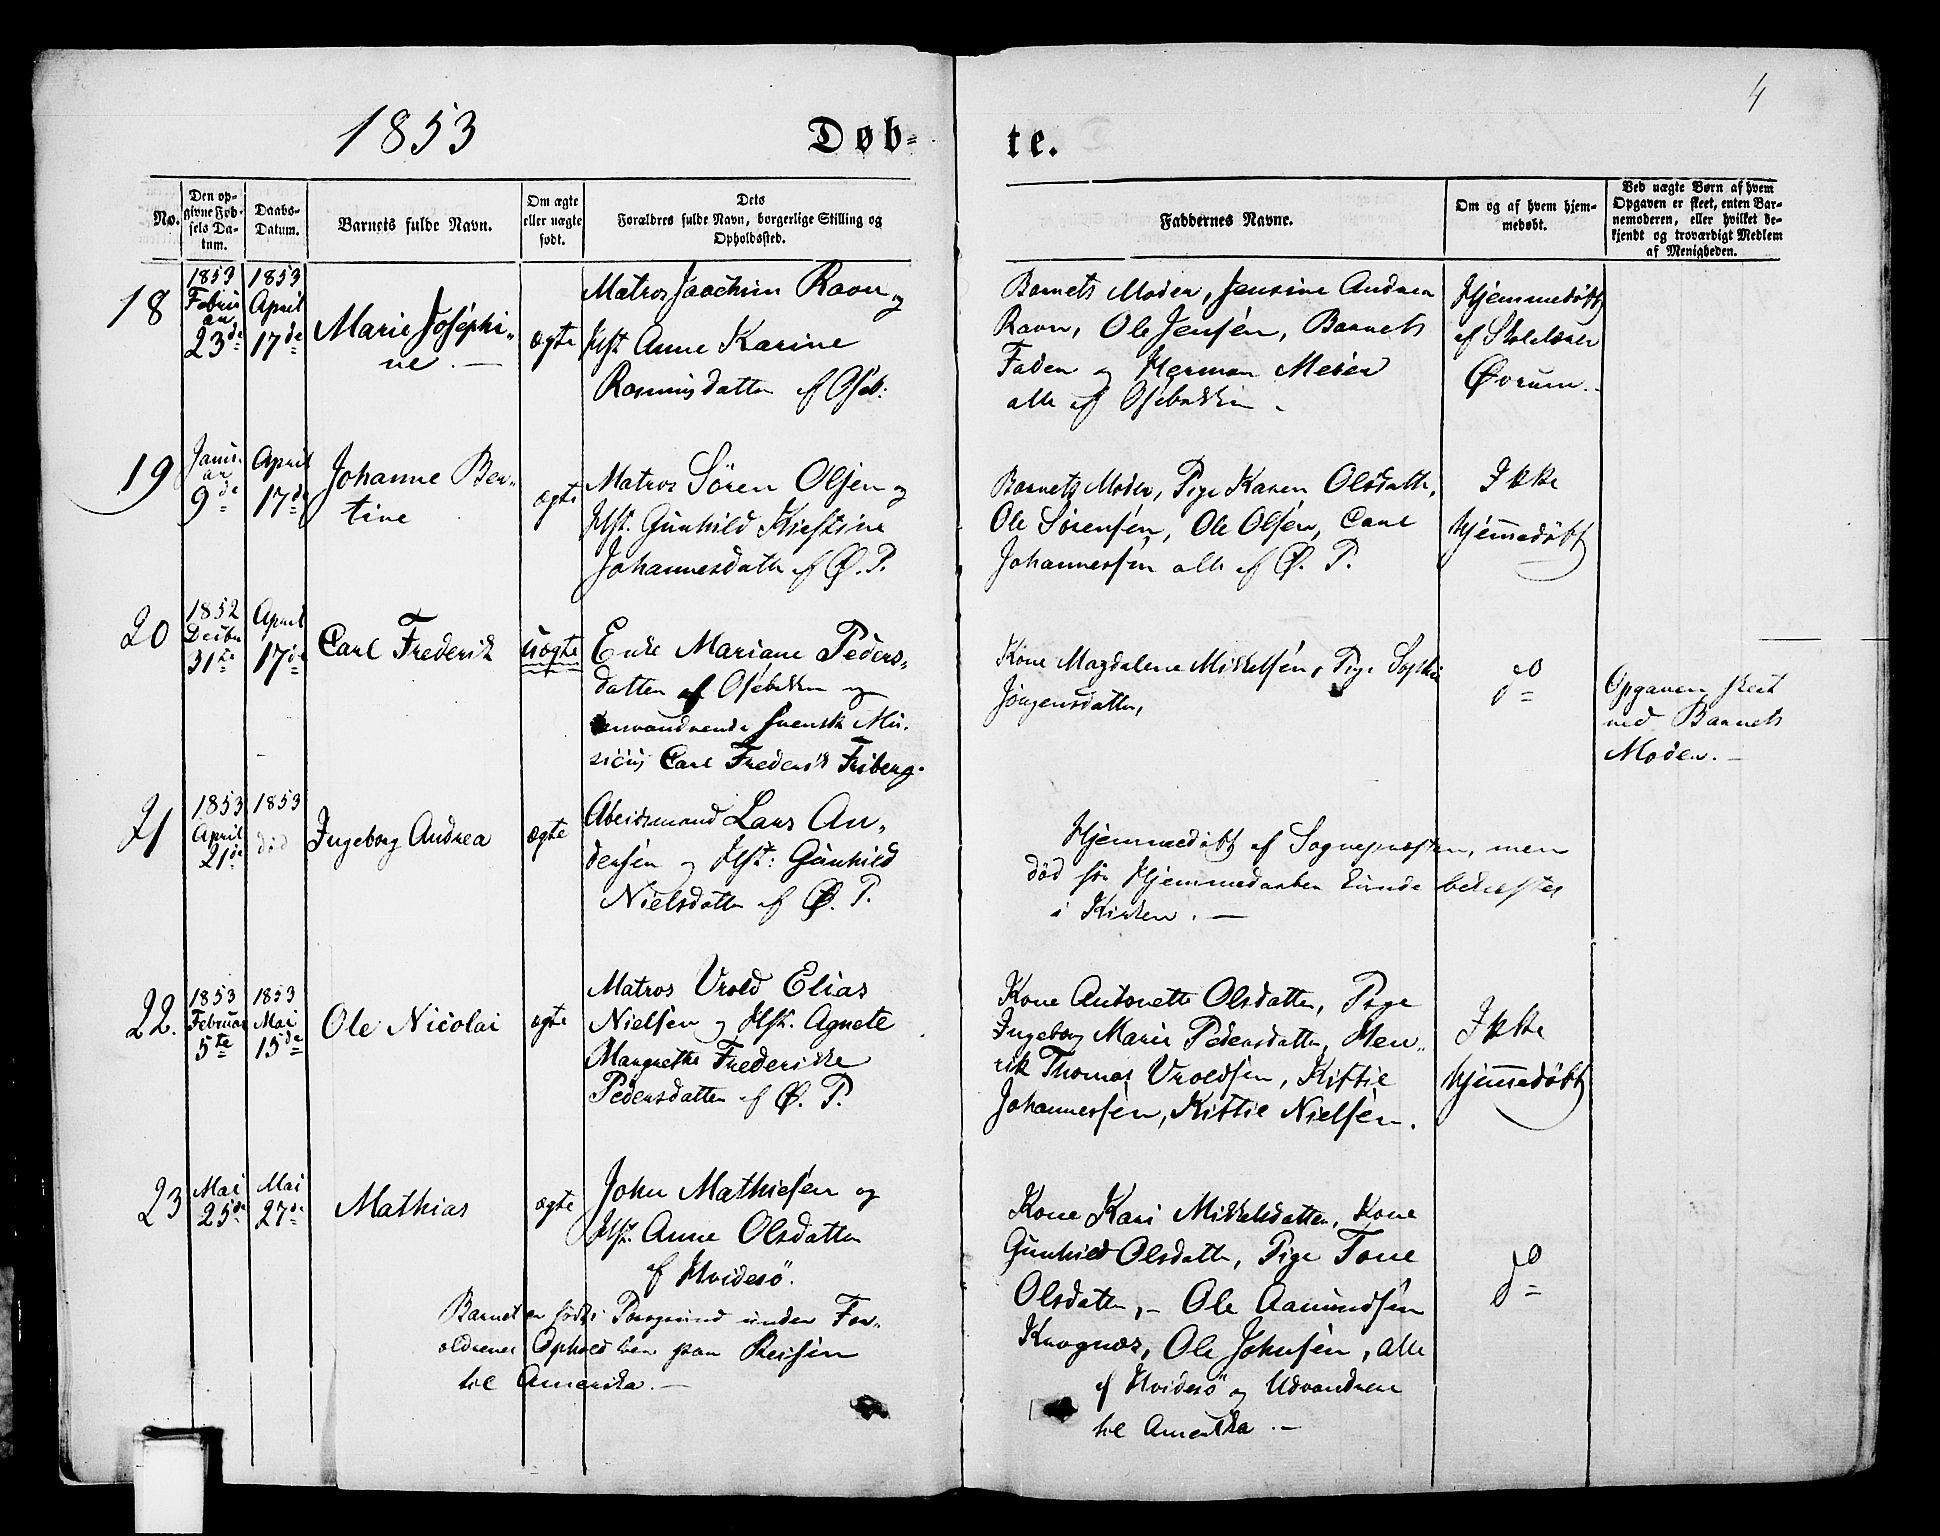 4
1853
Døb-
te.
No.
Den op-
givne Fød-
sels Da-
tum.
Daabs-
Datum.
Barnets fulde Navn.
Om ægte
eller uægte
født.
Dets
Forældres fulde Navn, borgerlige Stilling og
Opholdssted.
Faddernes Navne.
Om og af hvem hjem-
medøbt.
Ved uægte Børn af hvem
Opgaven er skeet, enten Bar-
nemoderen, eller hvilket be-
kjendt og troværdigt Medlem
af Menigheden.
18
1853
Febru
ar
23de
1853
April
17de
Marie Josephi-
ne. —
ægte
Matros Joachim Ravn og
Hst. Anne Karine
Rasmusdatter af Oseb:
Barnets Moder, Jensine Andrea
Ravn, Ole Jensen, Barnets
Fader og Herman Meier
alle af Osebakken.
Hjemmedøbt
af Skolelærer
Øvrum.
19
Janu-
ar
9de
April
17de
Johanne Ber-
tine
ægte
Matros Sören Olsen og
Hst. Gunhild Kirstine
Johannesdatter af Ø. P.
Barnets Moder, Pige Karen Olsdatter,
Ole Sørensen, Ole Olsen, Carl
Johannessen alle af Ø. P.
Ikke
hjemmedøbt
20
1852
Decbr
31te
April
17de
Carl Frederik
uægte
Enke Mariane Peders-
datter af Osebakken og
omvandrende svensk Mu-
sicus Carl Frederik Friberg.
Kone Magdalene Mikkelsen, Pige Sophie
Jörgensdatter,
do
Opgaven skeet
ved Barnets
Moder. —
21
1853
April
21de
1853
død
Ingeborg Andrea
ægte
Abeidsmand Lars An-
dersen og Hst: Gunhild
Nielsdatter af Ø. P.
Hjemmedøbt af Sognepræsten, men
død før Hjemmedaaben kunde bekræftes
i Kirken. —
22.
1853
Februar
5te
1853
Mai
15de
Ole Nicolai
ægte
Matros Vrold Elias
Nielsen og Hst. Agnete
Margrethe Frederikke
Pedersdatter af Ø. P.
Kone Antonette Olsdatter, Pige
Ingeborg Marie Pedersdatter, Hen-
rik Thomas Vroldsen, Kittil
Johannessen, Kittil Nielsen.
Ikke
hjemmedøbt
23
Mai
25de
Mai
27de
Mathias
ægte
John Mathiesen og
Hst. Anne Olsdatter
af Hvidesö.
Barnet er født i Porsgrund under For-
ældrenes Ophold her paa Reisen
til Amerika. —
Kone Kari Mikkelsdatter, Kone
Gunhild Olsdatter, Pige Tone
Olsdatter, - Ole Aamundsen
Kragnæs, Ole Johnsen, alle
af Hvidesö og Udvandrere
til Amerika. —
do